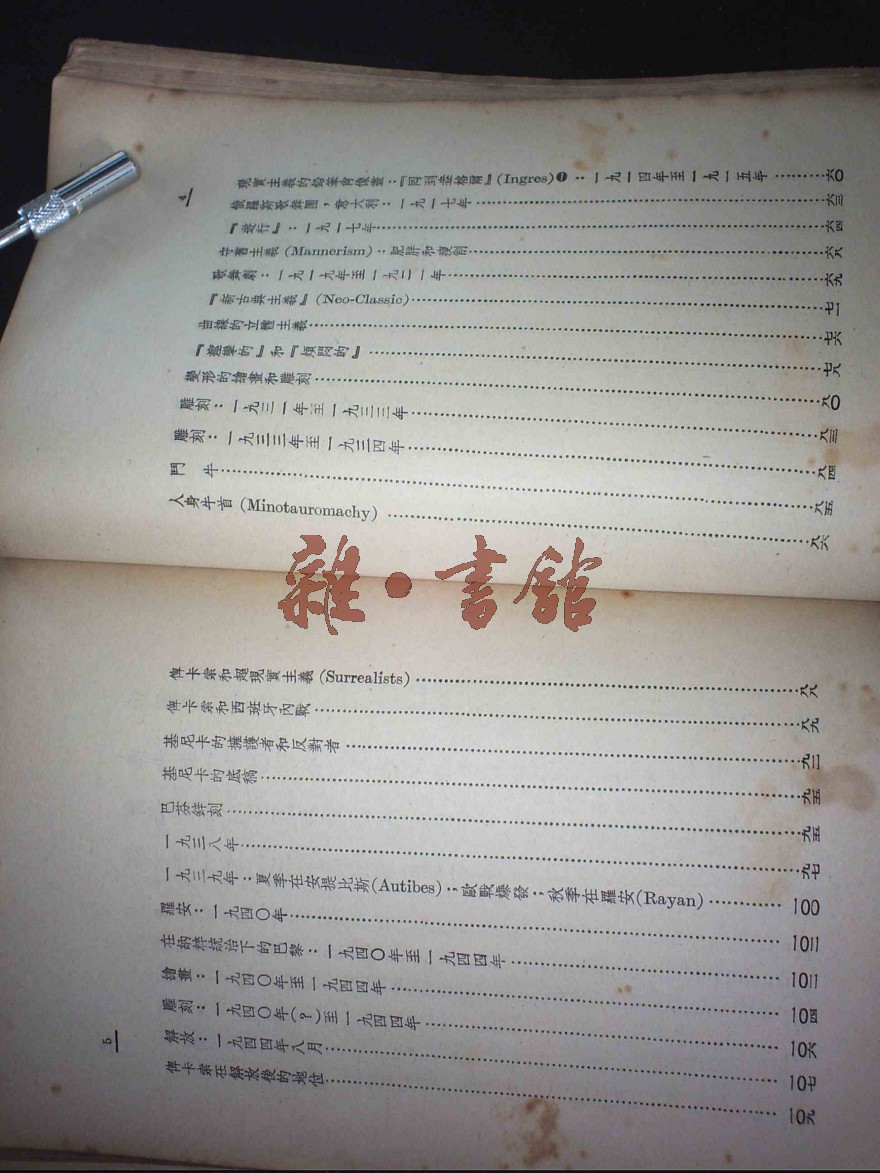 現實主義的鉛筆肖像畫：『回到盎格爾』(Ingres)❶：一九一四年至一九一五年……六〇
俄羅斯歌舞團，意大利：一九一七年……六三
『遊行』：一九一七年……六四
守舊主義 (Mannerism)：肥胖和瘦削……六八
歌舞劇：一九一九年至一九二一年……六九
『新古典主義』(Neo-Classic)……七一
曲線的立體主義……七六
『痙攣的』和『煩悶的』……七八
變形的繪畫和雕刻……八〇
雕刻：一九三一年至一九三三年……八三
雕刻：一九三三年至一九三四年……八四
鬥 牛……八五
人身牛首 (Minotauromachy)……八六
4
雜·書館
俾卡索和超現實主義 (Surrealists)……八八
俾卡索和西班牙內戰……八九
基尼卡的擁護者和反對者……九二
基尼卡的底稿……九五
巴芬鋅刻……九五
一九三八年……九七
一九三九年：夏季在安提比斯(Autibes)；歐戰爆發；秋季在羅安(Rayan)……一〇〇
羅安：一九四〇年……一〇二
在納粹統治下的巴黎：一九四〇年至一九四四年……一〇二
繪畫：一九四〇年至一九四四年……一〇四
雕刻：一九四〇年(？)至一九四四年……一〇六
解放：一九四四年八月……一〇七
俾卡索在解放後的地位……一〇九
5